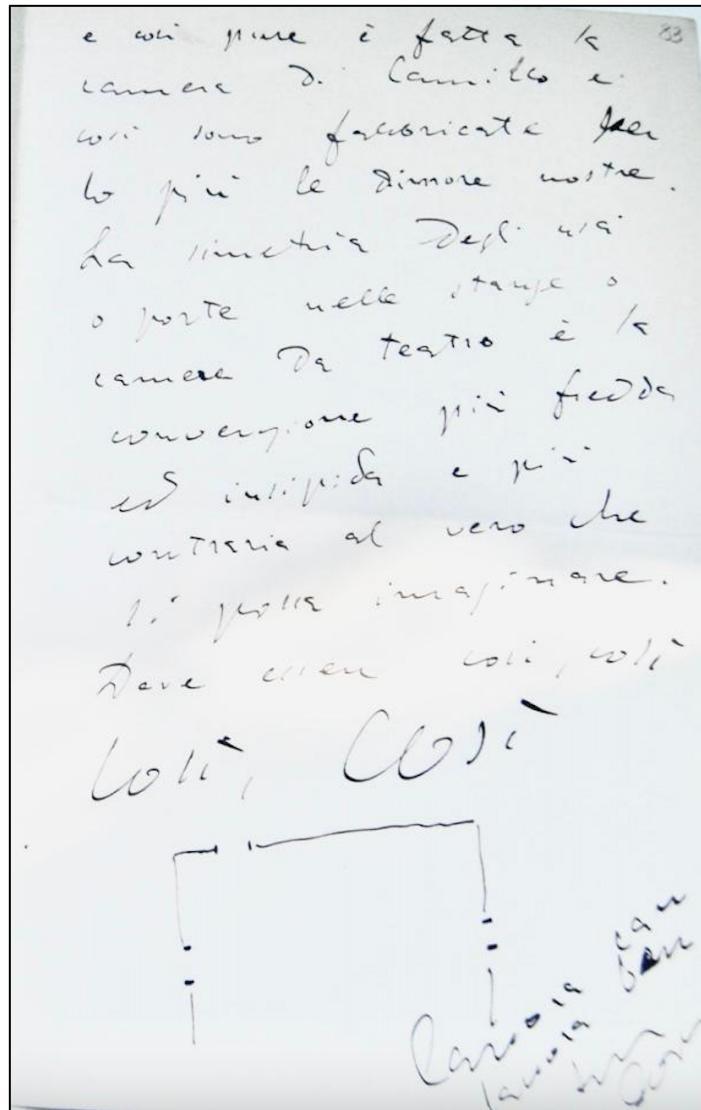 83
e così pure è fatta la
camera di Camillo e
così sono fabbricate per
lo più le dimore nostre.
La simetria degli usci
o porte nelle stanze o
camere da teatro è la
convenzione più fredda
ed insipida e più
contraria al vero che
si possa imaginare.
Deve essere così, così
Così, Così
Lavora
lavora ben